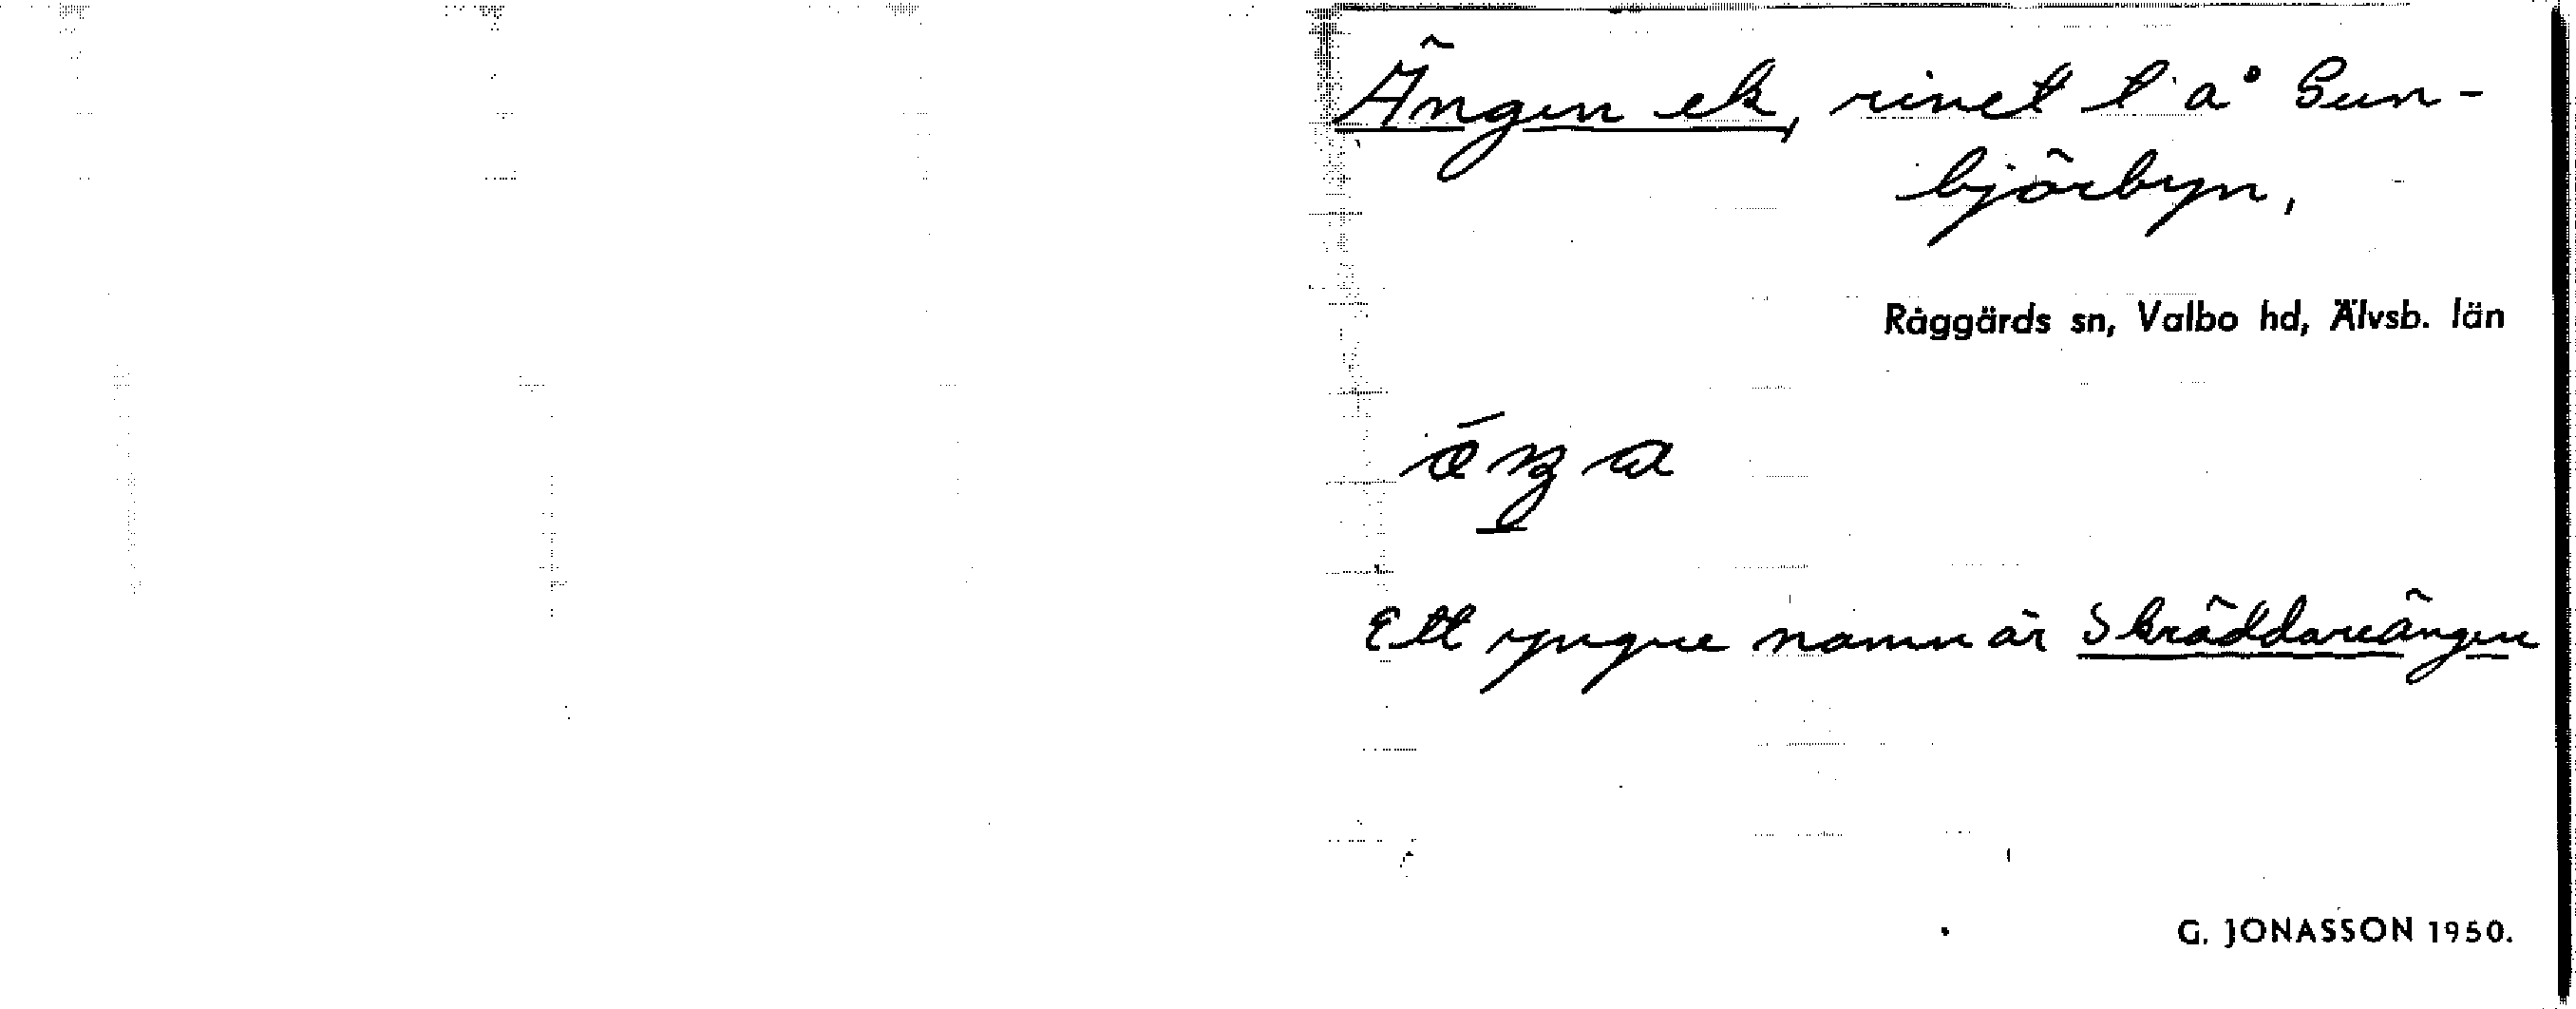 Ängen ek, rivet t. å Sun-
björbyn,
Råggärds sn, Valbo hd, Älvsb. län
Ett yngre namn är Skräddareängen
G. JONASSON 1950.